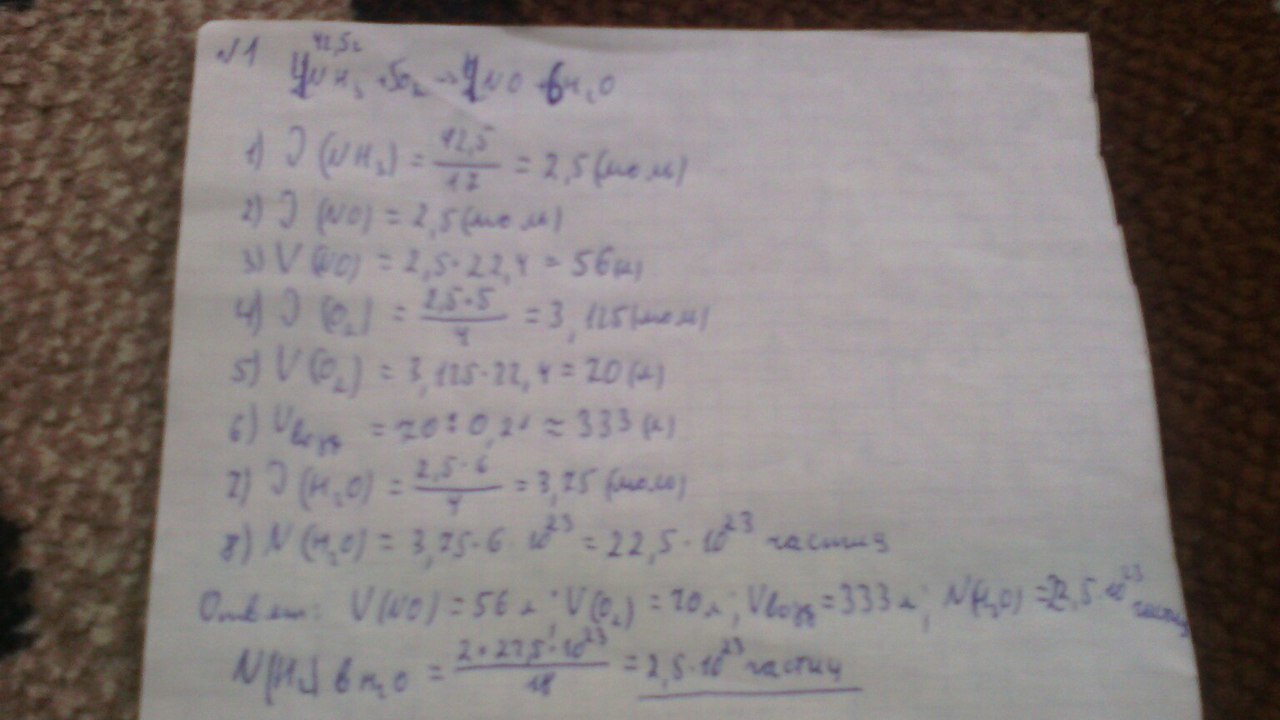 №1
42,5г
4NH₃ + 5O₂ → 4NO + 6H₂O
1) ν(NH₃) = 42,5/17 = 2,5 (моль)
2) ν(NO) = 2,5 (моль)
3) V(NO) = 2,5 · 22,4 = 56 (л)
4) ν(O₂) = 2,5·5/4 = 3,125 (моль)
5) V(O₂) = 3,125 · 22,4 = 70 (л)
6) Vвозд = 70 : 0,21 ≈ 333 (л)
7) ν(H₂O) = 2,5·6/4 = 3,75 (моль)
8) N(H₂O) = 3,75 · 6 · 10²³ = 22,5 · 10²³ частиц
Ответ: V(NO) = 56 л; V(O₂) = 70 л; Vвозд = 333 л; N(H₂O) = 22,5 · 10²³ частиц
N(H₂) в H₂O = 2 · 22,5 · 10²³/18 = 2,5 · 10²³ частиц